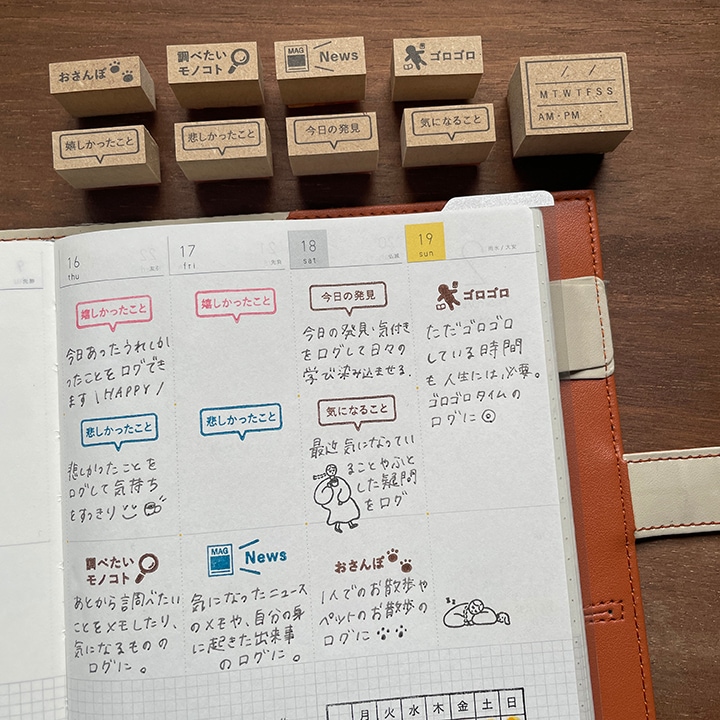 おさんぽ
調べたい
モノコト
MAG
News
ゴロゴロ
M T W T F S S
AM・PM :
嬉しかったこと
悲しかったこと
今日の発見
気になること
16
thu
17
fri
18
sat
19
sun
嬉しかったこと
今日あったうれしか
ったことをログでき
ます \HAPPY/
悲しかったこと
悲しかったことを
ログして気持ち
をすっきり
調べたい
モノコト
あとから調べたい
ことをメモしたり、
気になるものの
ログに。
嬉しかったこと
悲しかったこと
MAG
News
気になったニュース
のメモや、自分の身
に起きた出来事
のログに。
今日の発見
今日の発見・気付き
をログして日々の
学び染み込ませる.
気になること
最近気になってい
ることやふと
した疑問
をログ
おさんぽ
1人でのお散歩や
ペットのお散歩の
ログに
ゴロゴロ
ただゴロゴロ
している時間
も人生には必要。
ゴロゴロタイムの
ログに
zz
月 火 水 木 金 土 日